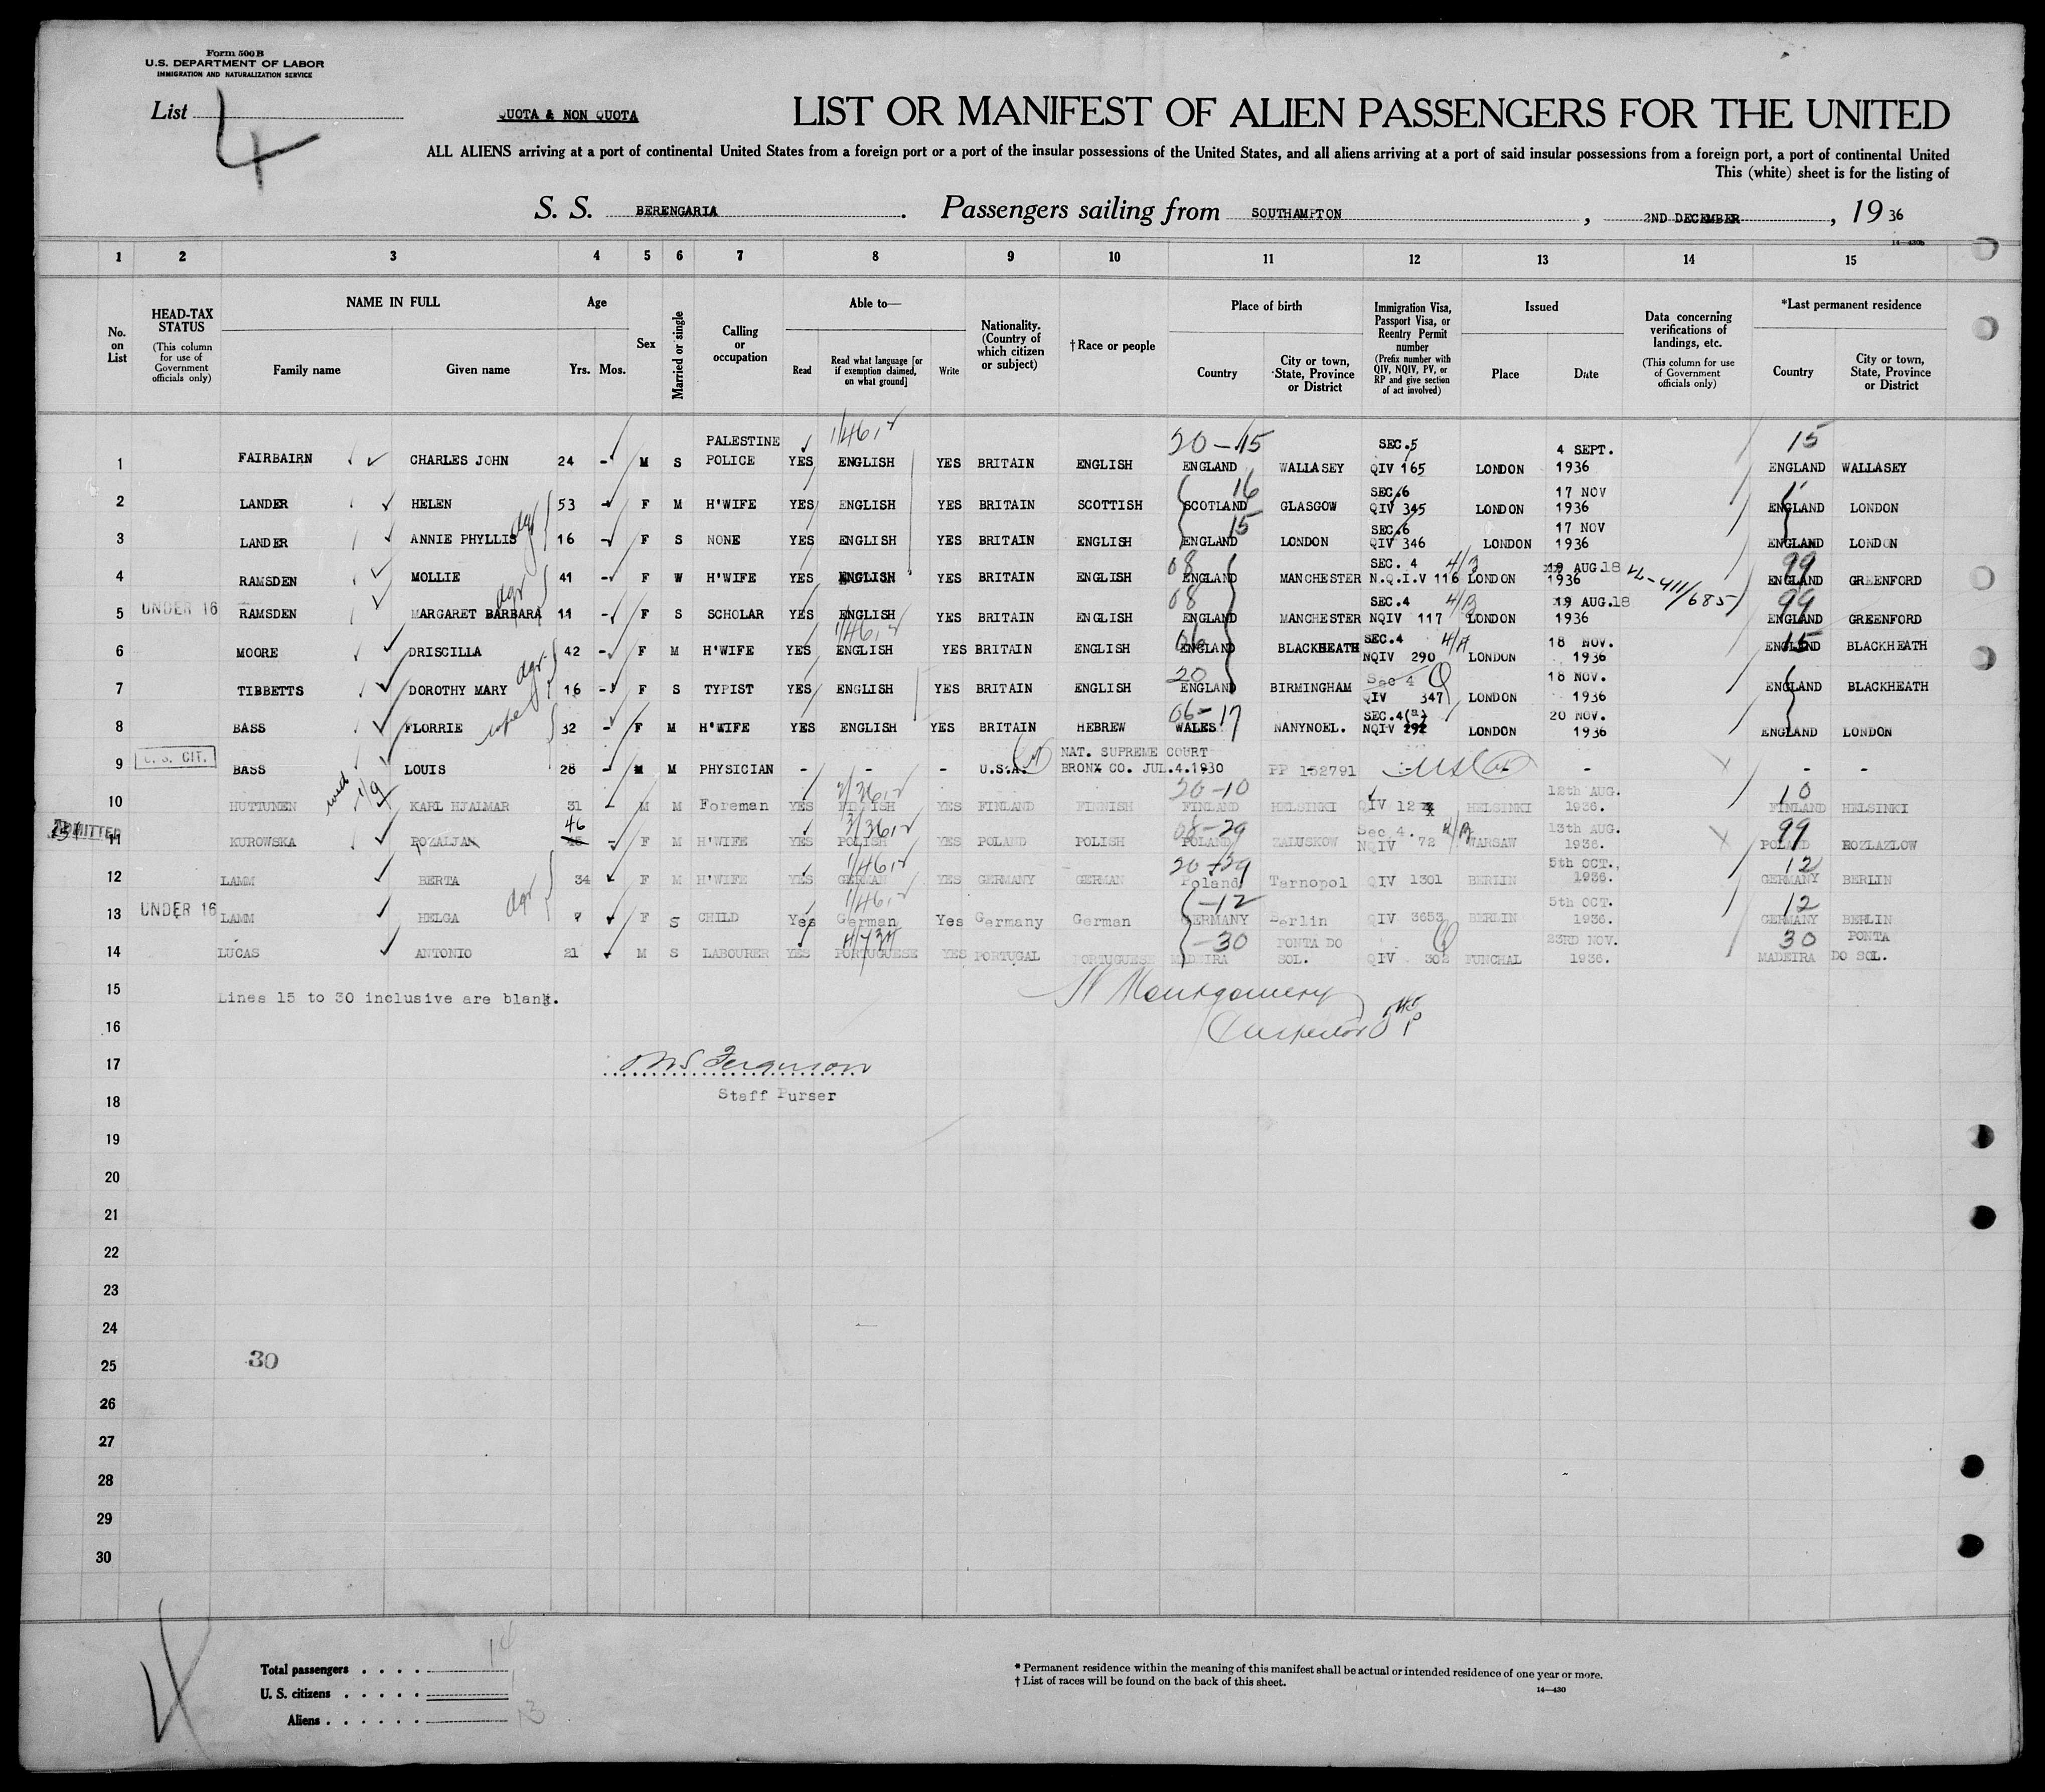 Form 500 B
U.S. DEPARTMENT OF LABOR
IMMIGRATION AND NATURALIZATION SERVICE
List 4
QUOTA & NON QUOTA
LIST OR MANIFEST OF ALIEN PASSENGERS FOR THE UNITED
ALL ALIENS arriving at a port of continental United States from a foreign port or a port of the insular possessions of the United States, and all aliens arriving at a port of said insular possessions from a foreign port, a port of continental United
This (white) sheet is for the listing of
S. S. BERENGARIA. Passengers sailing from SOUTHAMPTON, 2ND DECEMBER, 19 36
14—430b
1 2 3 4 5 6 7 8 9 10 11 12 13 14 15
No. on List
HEAD-TAX STATUS (This column for use of Government officials only)
NAME IN FULL
Family name Given name
Age
Yrs. Mos.
Sex
Married or single
Calling or occupation
Able to—
Read Read what language [or if exemption claimed, on what ground] Write
Nationality. (Country of which citizen or subject)
†Race or people
Place of birth
Country City or town, State, Province or District
Immigration Visa, Passport Visa, or Reentry Permit number (Prefix number with QIV, NQIV, PV, or RP and give section of act involved)
Issued
Place Date
Data concerning verifications of landings, etc. (This column for use of Government officials only)
*Last permanent residence
Country City or town, State, Province or District
PALESTINE 1/46 20-15 SEC.5 4 SEPT. 15
1 FAIRBAIRN CHARLES JOHN 24 - M S POLICE YES ENGLISH YES BRITAIN ENGLISH ENGLAND WALLASEY QIV 165 LONDON 1936 ENGLAND WALLASEY
16 SEC.6 17 NOV
2 LANDER HELEN 53 - F M H'WIFE YES ENGLISH YES BRITAIN SCOTTISH SCOTLAND GLASGOW QIV 345 LONDON 1936 ENGLAND LONDON
15 SEC.6 17 NOV
3 LANDER ANNIE PHYLLIS 16 - F S NONE YES ENGLISH YES BRITAIN ENGLISH ENGLAND LONDON QIV 346 LONDON 1936 ENGLAND LONDON
08 SEC. 4 4/B AUG. 18 99
4 RAMSDEN MOLLIE 41 - F W H'WIFE YES ENGLISH YES BRITAIN ENGLISH ENGLAND MANCHESTER N.Q.I.V 116 LONDON 1936 ENGLAND GREENFORD
08 SEC.4 4/B 19 AUG.18 99
5 UNDER 16 RAMSDEN MARGARET BARBARA 11 - F S SCHOLAR YES ENGLISH YES BRITAIN ENGLISH ENGLAND MANCHESTER NQIV 117 LONDON 1936 ENGLAND GREENFORD
1/46 06 SEC.4 4/A 18 NOV. 15
6 MOORE DRISCILLA 42 - F M H'WIFE YES ENGLISH YES BRITAIN ENGLISH ENGLAND BLACKHEATH NQIV 290 LONDON 1936 ENGLAND BLACKHEATH
20 Sec 4 Q 18 NOV.
7 TIBBETTS DOROTHY MARY 16 - F S TYPIST YES ENGLISH YES BRITAIN ENGLISH ENGLAND BIRMINGHAM QIV 347 LONDON 1936 ENGLAND BLACKHEATH
06-17 SEC.4(a) 20 NOV.
8 BASS FLORRIE wife 32 - F M H'WIFE YES ENGLISH YES BRITAIN HEBREW WALES NANYNOEL. NQIV 292 LONDON 1936 ENGLAND LONDON
U. S. CIT. NAT. SUPREME COURT
9 BASS LOUIS 28 - M M PHYSICIAN - - - U.S.A. BRONX CO. JUL.4.1930 PP 152791 - - -
20-10 12th AUG. 10
10 HUTTUNEN KARL HJALMAR 31 M M Foreman YES FINNISH YES FINLAND FINNISH FINLAND HELSINKI QIV 12 HELSINKI 1936. FINLAND HELSINKI
ADMITTED 46 3/36 08-29 Sec 4. 4/B 13th AUG. 99
11 KUROWSKA ROZALJAN - F M H'WIFE YES POLISH YES POLAND POLISH POLAND ZALUSKOW NQIV 72 WARSAW 1936. POLAND ROZLAZLOW
1/46 20-29 5th OCT. 12
12 LAMM BERTA 34 F M H'WIFE YES GERMAN YES GERMANY GERMAN Poland Tarnopol QIV 1301 BERLIN 1936. GERMANY BERLIN
1/46 -12 5th OCT. 12
13 UNDER 16 LAMM HELGA 7 F S CHILD Yes German Yes Germany German GERMANY Berlin QIV 3653 BERLIN 1936. GERMANY BERLIN
-30 PONTA DO Q 23RD NOV. 30 PONTA
14 LUCAS ANTONIO 21 M S LABOURER YES PORTUGUESE YES PORTUGAL PORTUGUESE MADEIRA SOL. QIV 302 FUNCHAL 1936. MADEIRA DO SOL.
15 Lines 15 to 30 inclusive are blank. Montgomery
16 Inspector
17 Ferguson
18 Staff Purser
19
20
21
22
23
24
25 30
26
27
28
29
30
Total passengers . . . . 14
U. S. citizens . . . . . 1
Aliens . . . . . . 13
* Permanent residence within the meaning of this manifest shall be actual or intended residence of one year or more.
† List of races will be found on the back of this sheet.
14—430